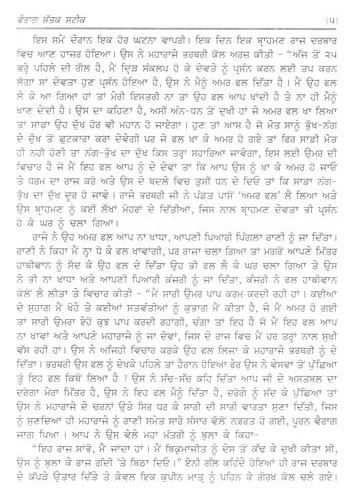 ਵੈਰਾਗ ਸ਼ੱਤਕ ਸਟੀਕ (੫)
ਇਸ ਸਮੇਂ ਦੌਰਾਨ ਇਕ ਹੋਰ ਘਟਨਾ ਵਾਪਰੀ। ਇਕ ਦਿਨ ਇਕ ਬ੍ਰਾਹਮਣ ਰਾਜ ਦਰਬਾਰ
ਵਿਚ ਆਣ ਹਾਜ਼ਰ ਹੋਇਆ। ਉਸ ਨੇ ਮਹਾਰਾਜੇ ਭਰਥਰੀ ਕੋਲ ਅਰਜ਼ ਕੀਤੀ - “ਅੱਜ ਤੋਂ ੨੫
ਵਰ੍ਹੇ ਪਹਿਲੇ ਦੀ ਗੱਲ ਹੈ, ਮੈਂ ਦ੍ਰਿੜ ਸੰਕਲਪ ਹੋ ਕੇ ਦੇਵਤੇ ਨੂੰ ਪ੍ਰਸੰਨ ਕਰਨ ਲਈ ਤਪ ਕਰਨ
ਲੱਗਾ ਸਾਂ ਦੇਵਤਾ ਹੁਣ ਪ੍ਰਸੰਨ ਹੋਇਆ ਹੈ, ਉਸ ਨੇ ਮੈਨੂੰ ਅਮਰ ਫਲ ਦਿੱਤਾ ਹੈ। ਮੈਂ ਉਹ ਫਲ
ਲੈ ਕੇ ਆ ਗਿਆ ਹਾਂ ਤਾਂ ਮੇਰੀ ਇਸਤਰੀ ਨਾ ਤਾਂ ਉਹ ਫਲ ਆਪ ਖਾਂਦੀ ਹੈ ਤੇ ਨਾ ਹੀ ਮੈਨੂੰ
ਖਾਣ ਦੇਂਦੀ ਹੈ। ਉਸ ਦਾ ਕਹਿਣਾ ਹੈ, ਅਸੀਂ ਅੰਨ-ਧਨ ਤੋਂ ਦੁਖੀ ਹਾਂ ਜੇ ਅਮਰ ਫਲ ਖਾ ਲਿਆ
ਤਾਂ ਸਾਡਾ ਉਹ ਦੁੱਖ ਹੋਰ ਵੀ ਮਹਾਨ ਹੋ ਜਾਏਗਾ। ਹੁਣ ਤਾਂ ਆਸ ਹੈ ਜੋ ਮੌਤ ਸਾਨੂੰ ਭੁੱਖ-ਨੰਗ
ਦੇ ਦੁੱਖ ਤੋਂ ਛੁਟਕਾਰਾ ਕਰਾ ਦੇਵੇਗੀ ਪਰ ਜੇ ਫਲ ਖਾ ਕੇ ਅਮਰ ਹੋ ਗਏ ਤਾਂ ਫਿਰ ਸਾਡੀ ਮੌਤ
ਹੀ ਨਹੀਂ ਹੋਣੀ ਤਾਂ ਨੰਗ-ਭੁੱਖ ਦਾ ਦੁੱਖ ਕਿਸ ਤਰ੍ਹਾਂ ਸਹਾਰਿਆ ਜਾਵੇਗਾ, ਇਸ ਲਈ ਉਮਰ ਦੀ
ਵਿਚਾਰ ਹੈ ਜੋ ਮੈਂ ਇਹ ਫਲ ਆਪ ਨੂੰ ਦੇ ਦੇਵਾਂ ਤਾਂ ਕਿ ਆਪ ਉਸ ਨੂੰ ਖਾ ਕੇ ਅਮਰ ਹੋ ਜਾਓ
ਤੇ ਧਰਮ ਦਾ ਰਾਜ ਕਰੋ ਅਤੇ ਉਸ ਦੇ ਬਦਲੇ ਵਿਚ ਤੁਸੀਂ ਧਨ ਦੇ ਦਿਓ ਤਾਂ ਕਿ ਸਾਡਾ ਨੰਗ-
ਭੁੱਖ ਦਾ ਦੁੱਖ ਦੂਰ ਹੋ ਜਾਵੇ। ਰਾਜੇ ਭਰਥਰੀ ਜੀ ਨੇ ਪੰਡਤ ਪਾਸੋਂ ‘ਅਮਰ ਫਲ’ ਲੈ ਲਿਆ ਅਤੇ
ਉਸ ਬ੍ਰਾਹਮਣ ਨੂੰ ਕਈ ਲੱਖਾਂ ਮੋਹਰਾਂ ਦੇ ਦਿੱਤੀਆਂ, ਜਿਸ ਨਾਲ ਬ੍ਰਾਹਮਣ ਦੇਵਤਾ ਭੀ ਪ੍ਰਸੰਨ
ਹੋ ਕੇ ਘਰ ਨੂੰ ਚਲਾ ਗਿਆ।
ਰਾਜੇ ਨੇ ਉਹ ਅਮਰ ਫਲ ਆਪ ਨਾ ਖਾਧਾ, ਆਪਣੀ ਪਿਆਰੀ ਪਿੰਗਲਾ ਰਾਣੀ ਨੂੰ ਜਾ ਦਿੱਤਾ।
ਰਾਣੀ ਨੇ ਕਿਹਾ ਮੈਂ ਨ੍ਹਾ ਧੋ ਕੇ ਫਲ ਖਾਵਾਂਗੀ, ਪਰ ਰਾਜਾ ਚਲਾ ਗਿਆ ਤਾਂ ਮਗਰੋਂ ਆਪਣੇ ਮਿੱਤਰ
ਹਾਥੀਵਾਨ ਨੂੰ ਸੱਦ ਕੇ ਉਹ ਫਲ ਦੇ ਦਿੱਤਾ ਉਹ ਭੀ ਫਲ ਲੈ ਕੇ ਘਰ ਚਲਾ ਗਿਆ ਤੇ ਉਸ
ਨੇ ਭੀ ਨਾ ਖਾਧਾ ਅਤੇ ਆਪਣੀ ਪਿਆਰੀ ਕੰਜਰੀ ਨੂੰ ਜਾ ਦਿੱਤਾ, ਕੰਜਰੀ ਨੇ ਫਲ ਹਾਥੀਵਾਨ
ਕੋਲੋਂ ਲੈ ਲੀਤਾ ਤੇ ਵਿਚਾਰ ਕੀਤੀ - “ਮੈਂ ਸਾਰੀ ਉਮਰ ਪਾਪ ਕਰਮ ਕਰਦੀ ਰਹੀ ਹਾਂ। ਕਈਆਂ
ਦੇ ਸੁਹਾਗ ਮੈਂ ਖੋਹੇ ਤੇ ਕਈਆਂ ਸਤਵੰਤੀਆਂ ਨੂੰ ਕੁਭਾਗ ਮੈਂ ਕੀਤਾ ਹੈ, ਜੇ ਮੈਂ ਅਮਰ ਹੋ ਗਈ
ਤਾਂ ਸਾਰੀ ਉਮਰਾ ਏਹੋ ਕੁਝ ਪਾਪ ਕਰਦੀ ਰਹਾਂਗੀ, ਚੰਗਾ ਤਾਂ ਇਹ ਹੈ ਜੋ ਮੈਂ ਇਹ ਫਲ ਆਪ
ਨਾ ਖਾਵਾਂ ਅਤੇ ਆਪਣੇ ਮਹਾਰਾਜੇ ਨੂੰ ਜਾ ਦੇਵਾਂ, ਜਿਸ ਦੇ ਰਾਜ ਵਿਚ ਮੈਂ ਹਰ ਤਰ੍ਹਾਂ ਨਾਲ ਸੁਖੀ
ਵੱਸ ਰਹੀ ਹਾਂ। ਉਸ ਨੇ ਅਜਿਹੀ ਵਿਚਾਰ ਕਰਕੇ ਉਹ ਫਲ ਲਿਜਾ ਕੇ ਮਹਾਰਾਜੇ ਭਰਥਰੀ ਨੂੰ ਦੇ
ਦਿੱਤਾ। ਭਰਥਰੀ ਉਸ ਫਲ ਨੂੰ ਦੇਖਕੇ ਪਹਿਲੇ ਤਾਂ ਹੈਰਾਨ ਹੋਇਆ ਫੇਰ ਉਸ ਨੇ ਵੇਸਵਾ ਤੋਂ ਪੁੱਛਿਆ
ਤੂੰ ਇਹ ਫਲ ਕਿਥੋਂ ਲਿਆ ਹੈ ? ਉਸ ਨੇ ਸੱਚ-ਸੱਚ ਕਹਿ ਦਿੱਤਾ ਆਪ ਜੀ ਦੇ ਅਸਤਬਲ ਦਾ
ਦਰੋਗਾ ਮੇਰਾ ਮਿੱਤਰ ਹੈ, ਉਸ ਨੇ ਇਹ ਫਲ ਮੈਨੂੰ ਦਿੱਤਾ ਹੈ, ਦਰੋਗੇ ਨੂੰ ਸੱਦ ਕੇ ਪੁੱਛਿਆ ਤਾਂ
ਉਸ ਨੇ ਮਹਾਰਾਜੇ ਦੇ ਚਰਨਾਂ ਉਤੇ ਸਿਰ ਧਰ ਕੇ ਸਾਰੀ ਦੀ ਸਾਰੀ ਵਾਰਤਾ ਸੁਣਾ ਦਿੱਤੀ, ਜਿਸ
ਨੂੰ ਸੁਣਦਿਆਂ ਹੀ ਮਹਾਰਾਜੇ ਨੂੰ ਰਾਣੀ ਸਮੇਤ ਸਾਰੇ ਸੰਸਾਰ ਵੱਲੋਂ ਨਫਰਤ ਹੋ ਗਈ, ਪੂਰਨ ਵੈਰਾਗ
ਜਾਗ ਪਿਆ । ਆਪ ਨੇ ਉਸ ਵੇਲੇ ਮਹਾਂ ਮੰਤਰੀ ਨੂੰ ਬੁਲਾ ਕੇ ਕਿਹਾ-
“ਇਹ ਰਾਜ ਸਾਂਭੋ, ਮੈਂ ਜਾਂਦਾ ਹਾਂ। ਮੈਂ ਬਿਕ੍ਰਮਾਜੀਤ ਨੂੰ ਦੇਸ ਤੋਂ ਕੱਢ ਕੇ ਦੁਖੀ ਕੀਤਾ ਸੀ,
ਉਸ ਨੂੰ ਬੁਲਾ ਕੇ ਰਾਜ ਗੱਦੀ 'ਤੇ ਬਿਠਾ ਦਿਓ।” ਏਨੀ ਗੱਲ ਕਹਿੰਦੇ ਹੋਇਆਂ ਹੀ ਰਾਜ ਦਰਬਾਰ
ਦੇ ਕੱਪੜੇ ਉਤਾਰ ਦਿੱਤੇ ਤੇ ਕੇਵਲ ਇਕ ਕੁਪੀਨ ਮਾਤ੍ਰ ਨੂੰ ਪਹਿਨ ਕੇ ਗੋਰਖ ਕੋਲ ਚਲੇ ਗਏ।